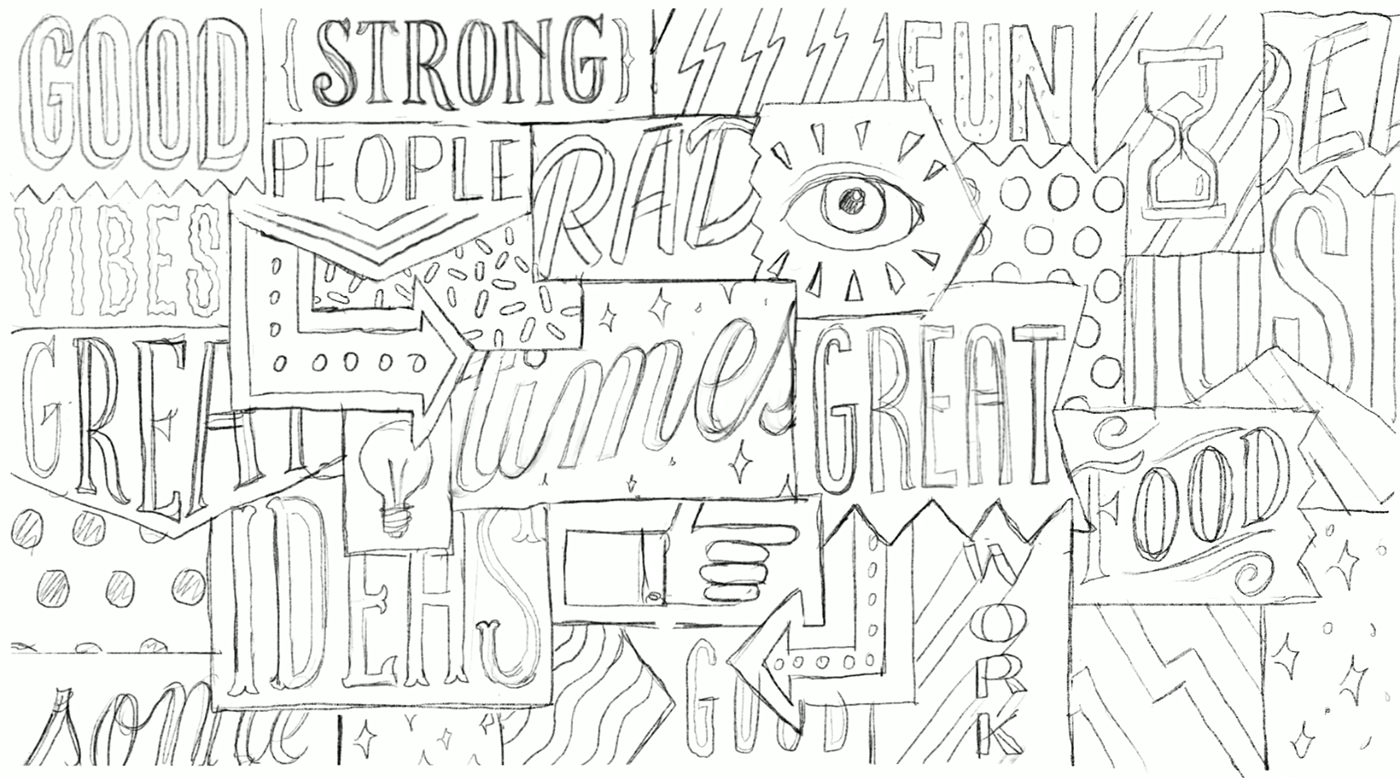 GOOD
{STRONG}
FUN
PEOPLE
RAD
VIBES
GREAT
times
GREAT
FOOD
IDEAS
WORK
GOOD
some